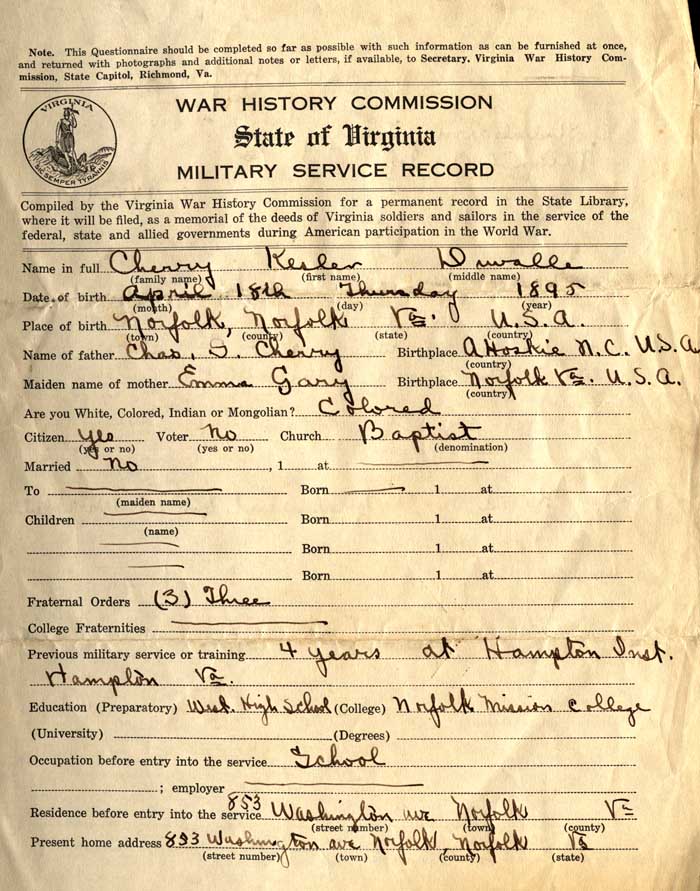 Note. This Questionnaire should be completed so far as possible with such information as can be furnished at once,
and returned with photographs and additional notes or letters, if available, to Secretary, Virginia War History Com-
mission, State Capitol, Richmond, Va.
VIRGINIA
SIC SEMPER TYRANNIS
WAR HISTORY COMMISSION
State of Virginia
MILITARY SERVICE RECORD
Compiled by the Virginia War History Commission for a permanent record in the State Library,
where it will be filed, as a memorial of the deeds of Virginia soldiers and sailors in the service of the
federal, state and allied governments during American participation in the World War.
Name in full Cherry Kesler Duvalle
(family name) (first name) (middle name)
Date of birth April 18th Thursday 1895
(month) (day) (year)
Place of birth Norfolk, Norfolk Va. U.S.A.
(town) (county) (state) (country)
Name of father Chas. S. Cherry Birthplace AHoskie N.C. U.S.A
(country)
Maiden name of mother Emma Gary Birthplace Norfolk Va. U.S.A.
(country)
Are you White, Colored, Indian or Mongolian? Colored
Citizen yes Voter No Church Baptist
(yes or no) (yes or no) (denomination)
Married No , 1 at
To Born 1 at
(maiden name)
Children Born 1 at
(name)
Born 1 at
Born 1 at
Fraternal Orders (3) Three
College Fraternities
Previous military service or training 4 years at Hampton Inst.
Hampton Va.
Education (Preparatory) High School (College) Norfolk Mission College
(University) (Degrees)
Occupation before entry into the service School
; employer
Residence before entry into the service 853 Washington ave Norfolk Va
(street number) (town) (county)
Present home address 853 Washington ave Norfolk, Norfolk Va
(street number) (town) (county) (state)